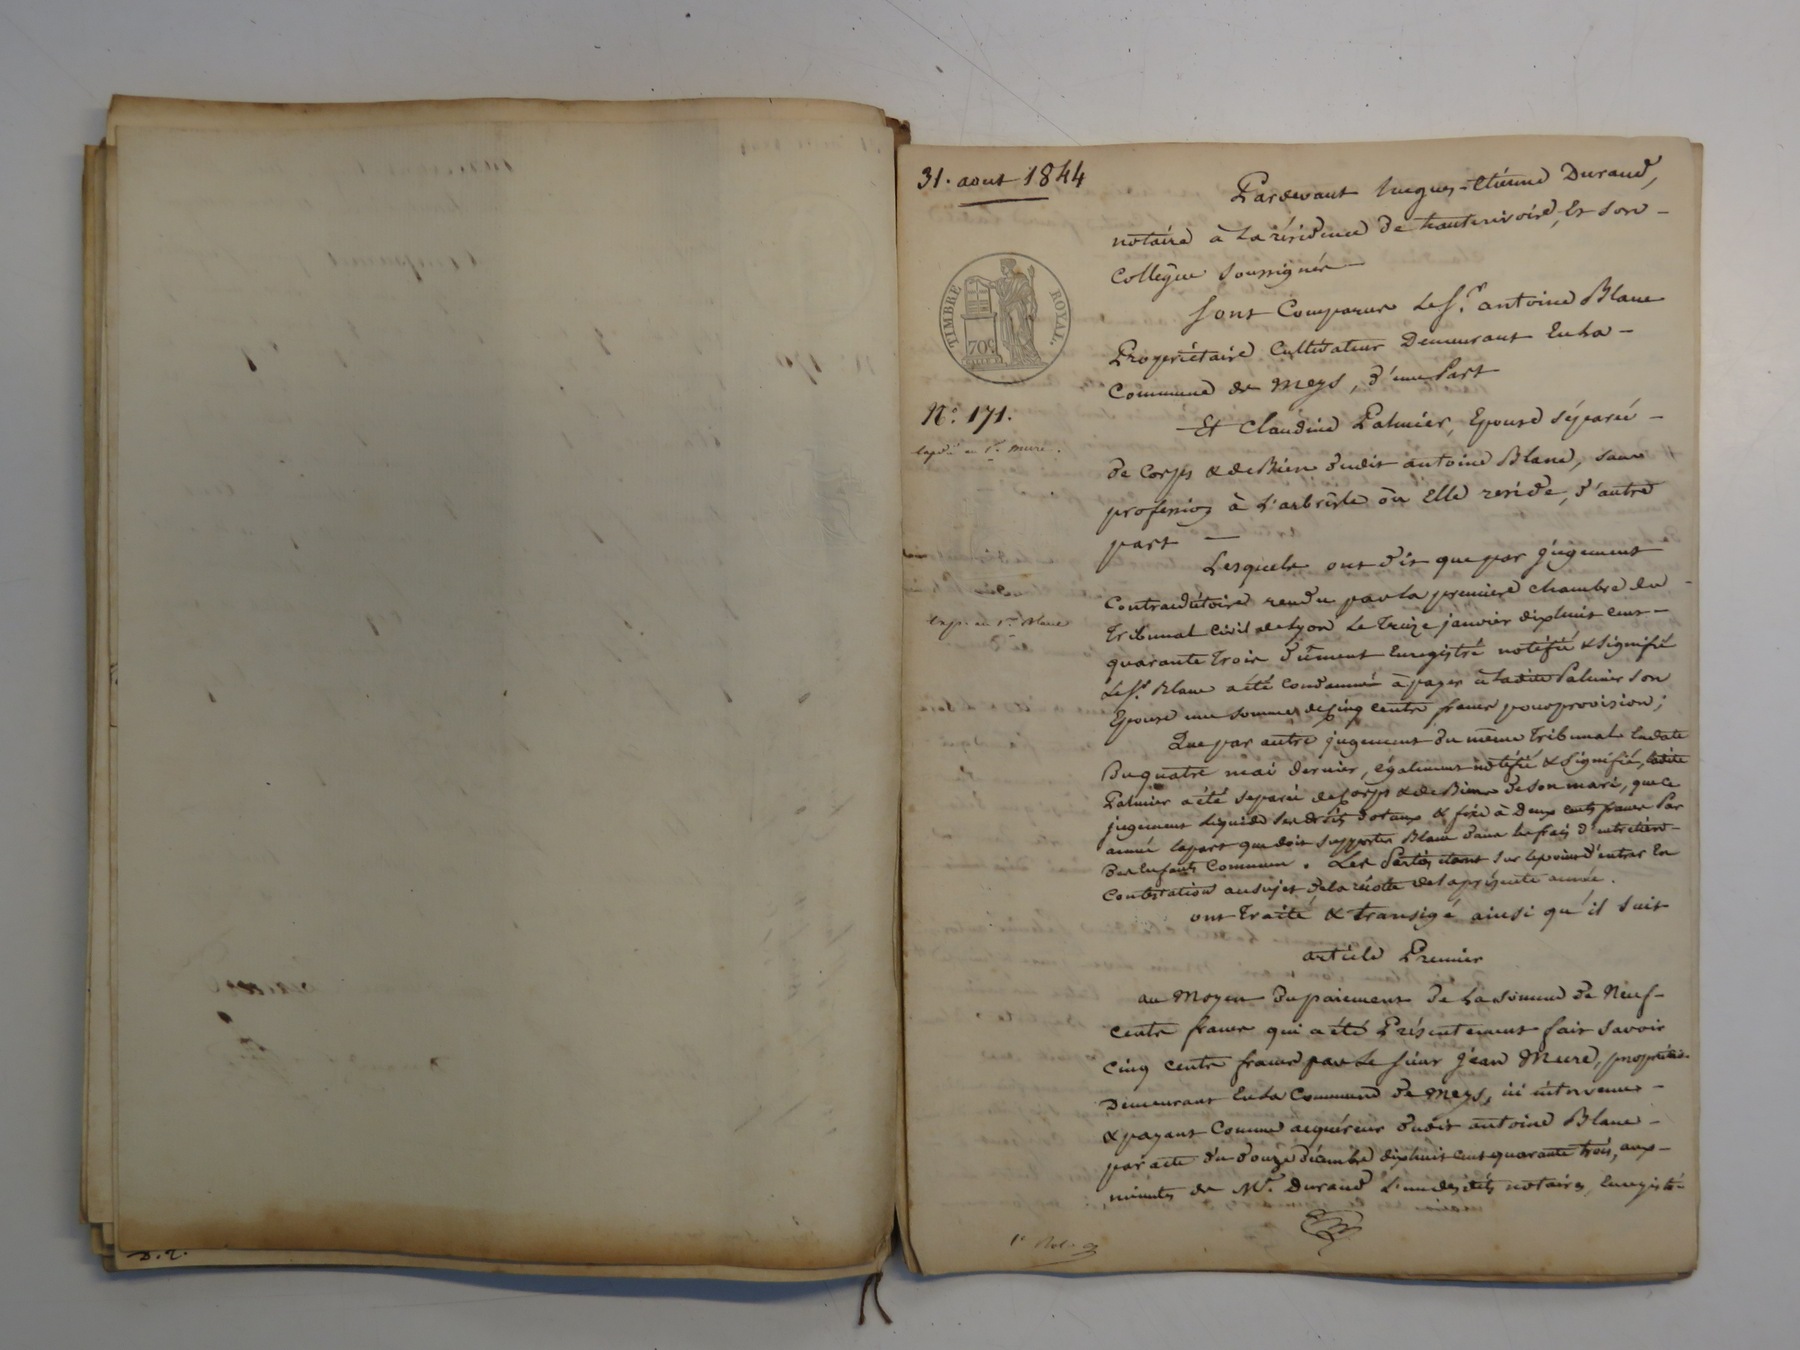 31. aout 1844
Pardevant hugues-Etienne Durand,
notaire à la résidence de hauterivoire, Et son
Collègue soussignés
TIMBRE ROYAL
70c
Sont Comparus Le Sr. antoine Blanc
Propriétaire Cultivateur Demeurant En la
Commune de Meys, d'une Part
N° 171.
Et Claudine Palmier, Epouse séparée
exp.on au Sr. Mure.
de Corps & de Biens dudit antoine Blanc, sans
profession à L'arbrêsle où Elle reside, d'autre
part
Lesquels ont dit que par jugement
Contradictoire rendu par la premiere chambre du
Tribunal Civil de Lyon Le Treize janvier dixhuit cent
exp. au Sr. Blanc
quarante trois dûment Enregistré notifié & signifié
Le Sr. Blanc a été Condamné à payer à ladite Palmier son
Epouse une somme de cinq cents francs pour provision;
Que par autre jugement du même Tribunal En date
Du quatre mai dernier, également notifié & signifié, ladite
Palmier a été separée de Corps & de Biens de son mari, que ce
jugement liquide ses droits dotaux & fixe à Deux cents francs Par
année la part que doit supporter Blanc dans les frais d'entretien
Des Enfants Communs. Les Parties étant sur le point d'entrer En
Contestation au sujet de la récolte de la présente année.
ont Traité & transigé ainsi qu'il suit
article Premier
au Moyen du paiement de La somme de Neuf
cents francs qui a été Présentement fait savoir
Cinq cents francs par Le sieur Jean Mure, propriétaire
Demeurant En la Commune de Meys, ici intervenu
& payant Comme acquéreur dudit antoine Blanc
par acte du douze décembre dixhuit cent quarante trois, aux
minutes de Me. Durand L'un desdits notaires, Enregistré
1er Rôle
D. 2.